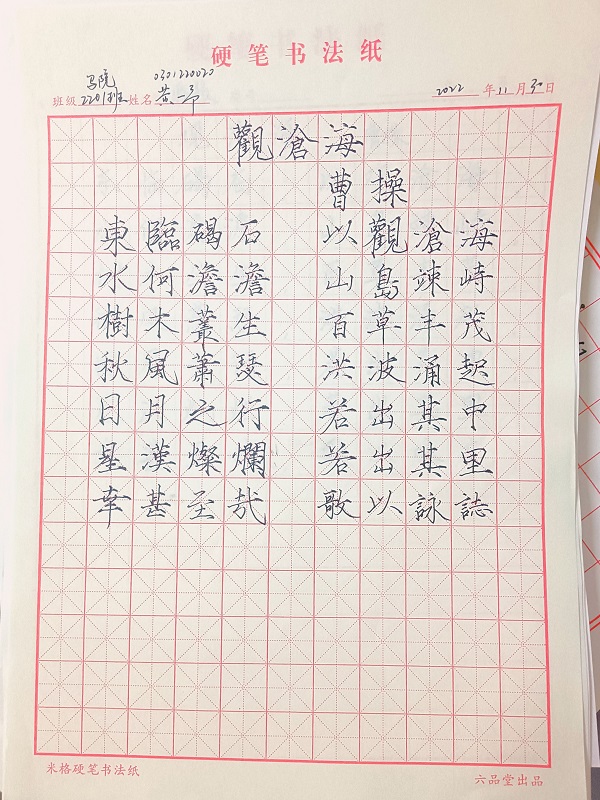 硬笔书法纸
马院 0301220020
班级 2201班 姓名 黄一予 2022 年 11 月 30 日
觀滄海
曹操
東臨碣石 以觀滄海
水何澹澹 山島竦峙
樹木叢生 百草丰茂
秋風蕭瑟 洪波涌起
日月之行 若出其中
星漢燦爛 若出其里
幸甚至哉 歌以詠誌
米格硬笔书法纸 六品堂出品